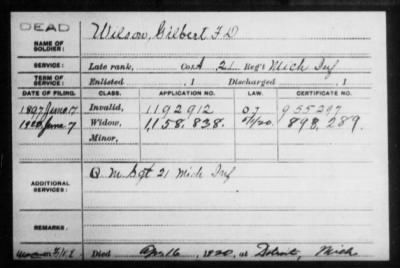 DEAD
NAME OF SOLDIER: Wilson, Gilbert F D
SERVICE: Late rank, Co. A 2d Reg't Mich Inf
TERM OF SERVICE: Enlisted , 1 Discharged , 1
DATE OF FILING. CLASS. APPLICATION NO. LAW. CERTIFICATE NO.
1897 June 7 Invalid, 1192912 07
June 7 Widow, 1,158.838. 893,289.
Minor,
ADDITIONAL SERVICES: Q M Sgt 21 Mich Inf
REMARKS.
Died Apr 16, 1920, at Detroit, Mich